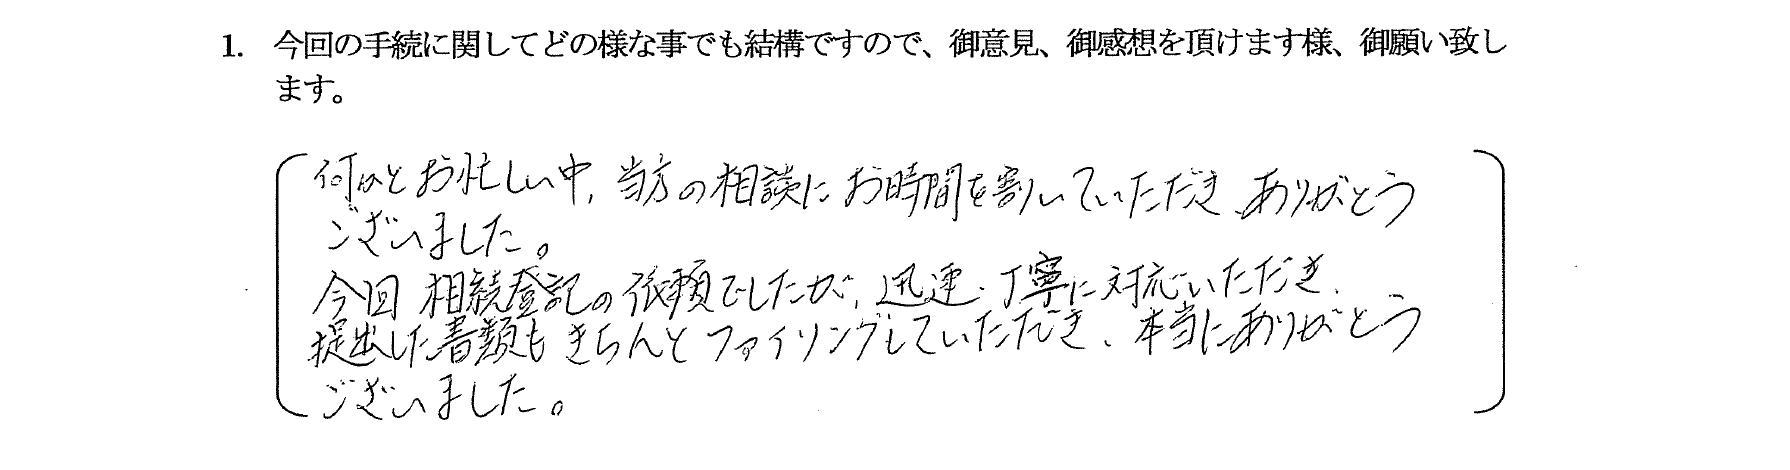 1. 今回の手続に関してどの様な事でも結構ですので、御意見、御感想を頂けます様、御願い致し
ます。
何かとお忙しい中、当方の相談にお時間を割いていただき、ありがとう
ございました。
今回 相続登記の依頼でしたが、迅速、丁寧に対応いただき、
提出した書類もきちんとファイリングしていただき、本当にありがとう
ございました。